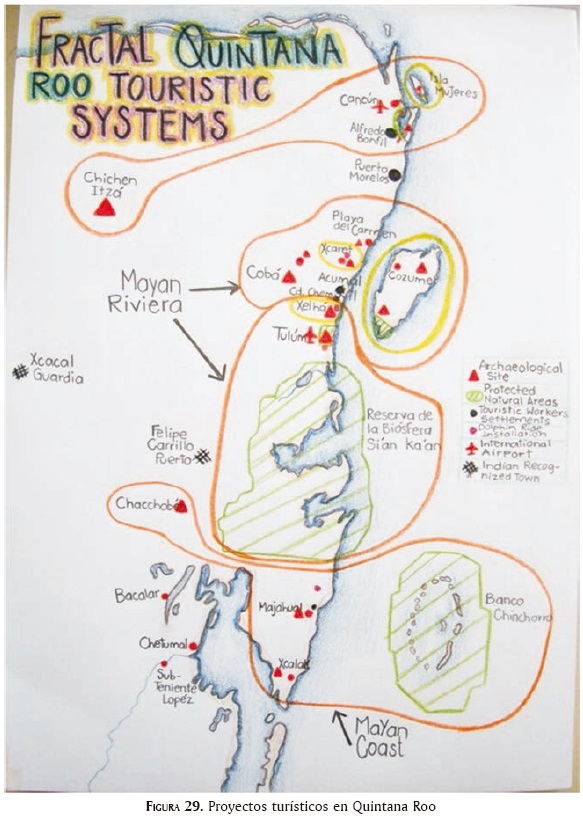 FRACTAL QUINTANA
ROO TOURISTIC
SYSTEMS
Isla
Mujeres
Cancún
Alfredo
Bonfil
Puerto
Morelos
Chichen
Itzá
Playa
del Carmen
Xcaret
Cobá
Acumal
Cozumel
Mayan
Riviera
Xelha
Tulúm
Xcacal
Guardia
Archaeological
Site
Protected
Natural Areas
Touristic Workers
Settlements
Dolphin Ride
Installation
International
Airport
Indian Recog-
nized Town
Reserva de
la Biósfera
Si'an Ka'an
Felipe
Carrillo
Puerto
Chacchobé
Bacalar
Majahual
Banco
Chinchorro
Chetumal
Xcalak
Sub-
Teniente
López
Mayan
Coast
FIGURA 29. Proyectos turísticos en Quintana Roo